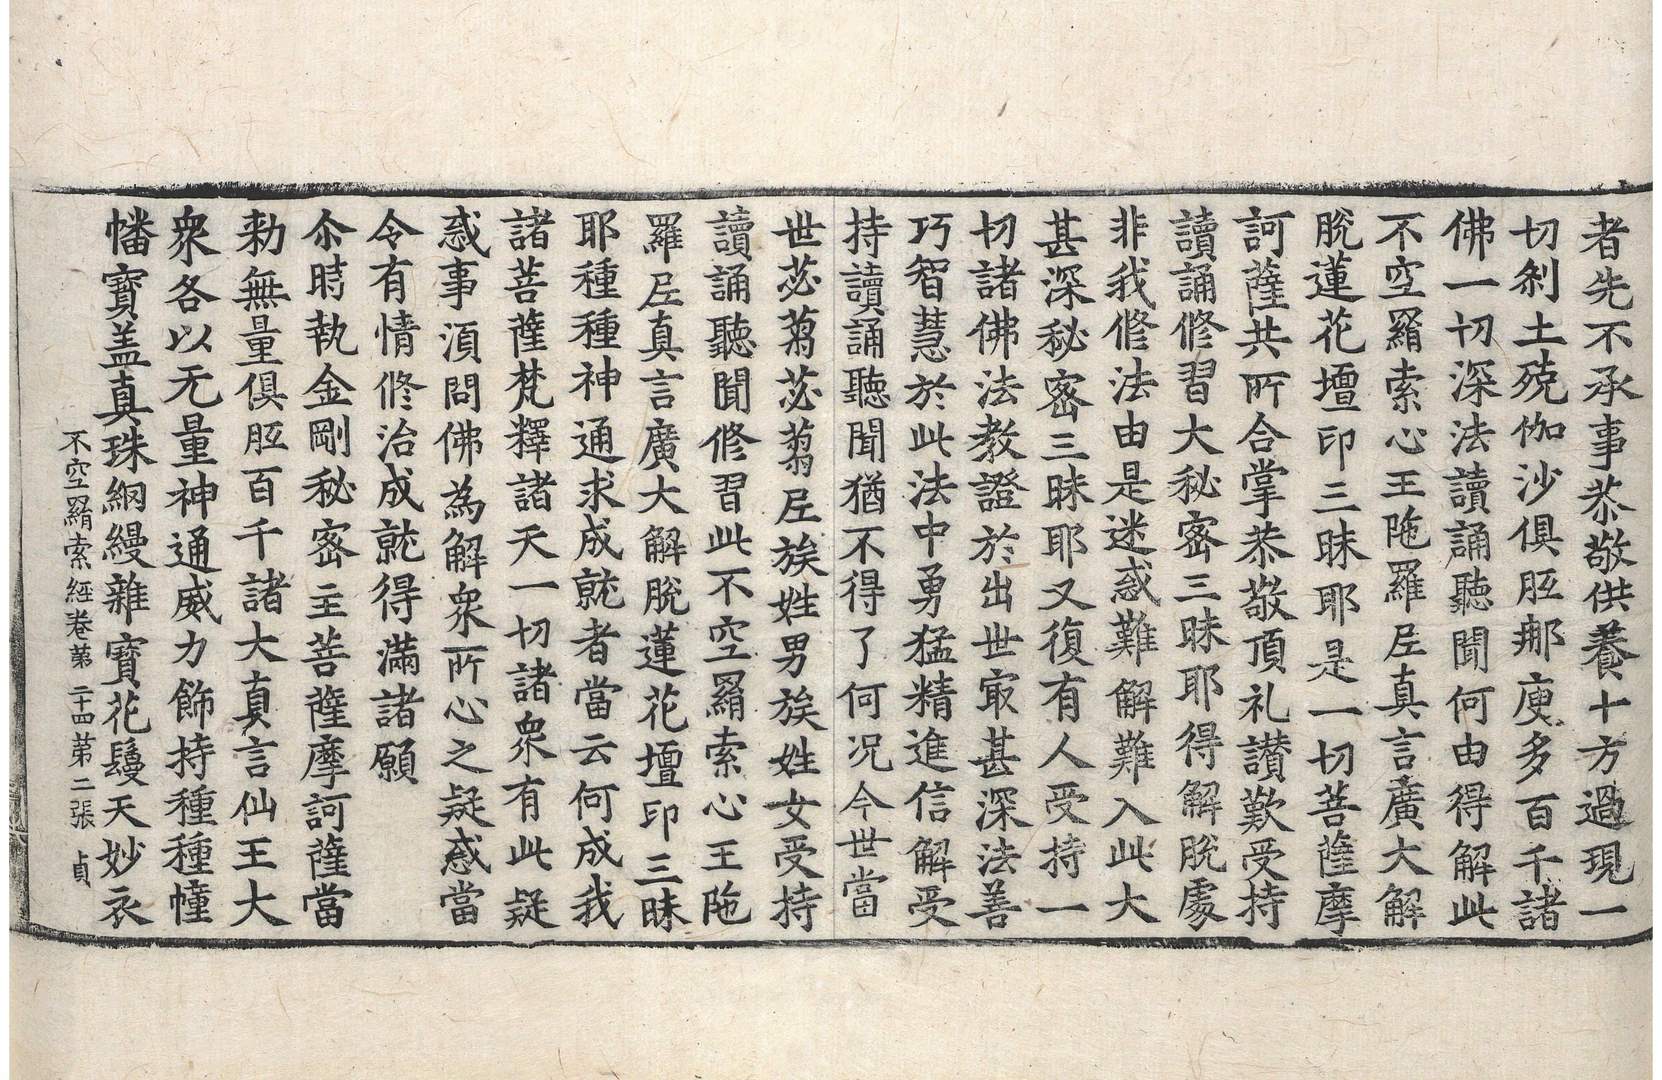 者先不承事恭敬供養十方過現一
切刹土殑伽沙俱胝那庾多百千諸
佛一切深法讀誦聽聞何由得解此
不空羂索心王陁羅尼真言廣大解
脫蓮花壇印三昧耶是一切菩薩摩
訶薩共所合掌恭敬頂礼讃歎受持
讀誦修習大秘密三昧耶得解脫處
非我修法由是迷惑難解難入此大
甚深秘密三昧耶又復有人受持一
切諸佛法教證於出世㝡甚深法善
巧智慧於此法中勇猛精進信解受
持讀誦聽聞猶不得了何況今世當
世苾芻苾芻尼族姓男族姓女受持
讀誦聽聞修習此不空羂索心王陁
羅尼真言廣大解脫蓮花壇印三昧
耶種種神通求成就者當云何成我
諸菩薩梵釋諸天一切諸衆有此疑
惑事湏問佛為解衆所心之疑惑當
令有情修治成就得滿諸願
尒時執金剛秘密主菩薩摩訶薩當
勑無量俱胝百千諸大真言仙王大
衆各以无量神通威力飾持種種幢
幡寶盖真珠網縵雜寶花鬘天妙衣
不空羂索經卷第二十四第二張　貞